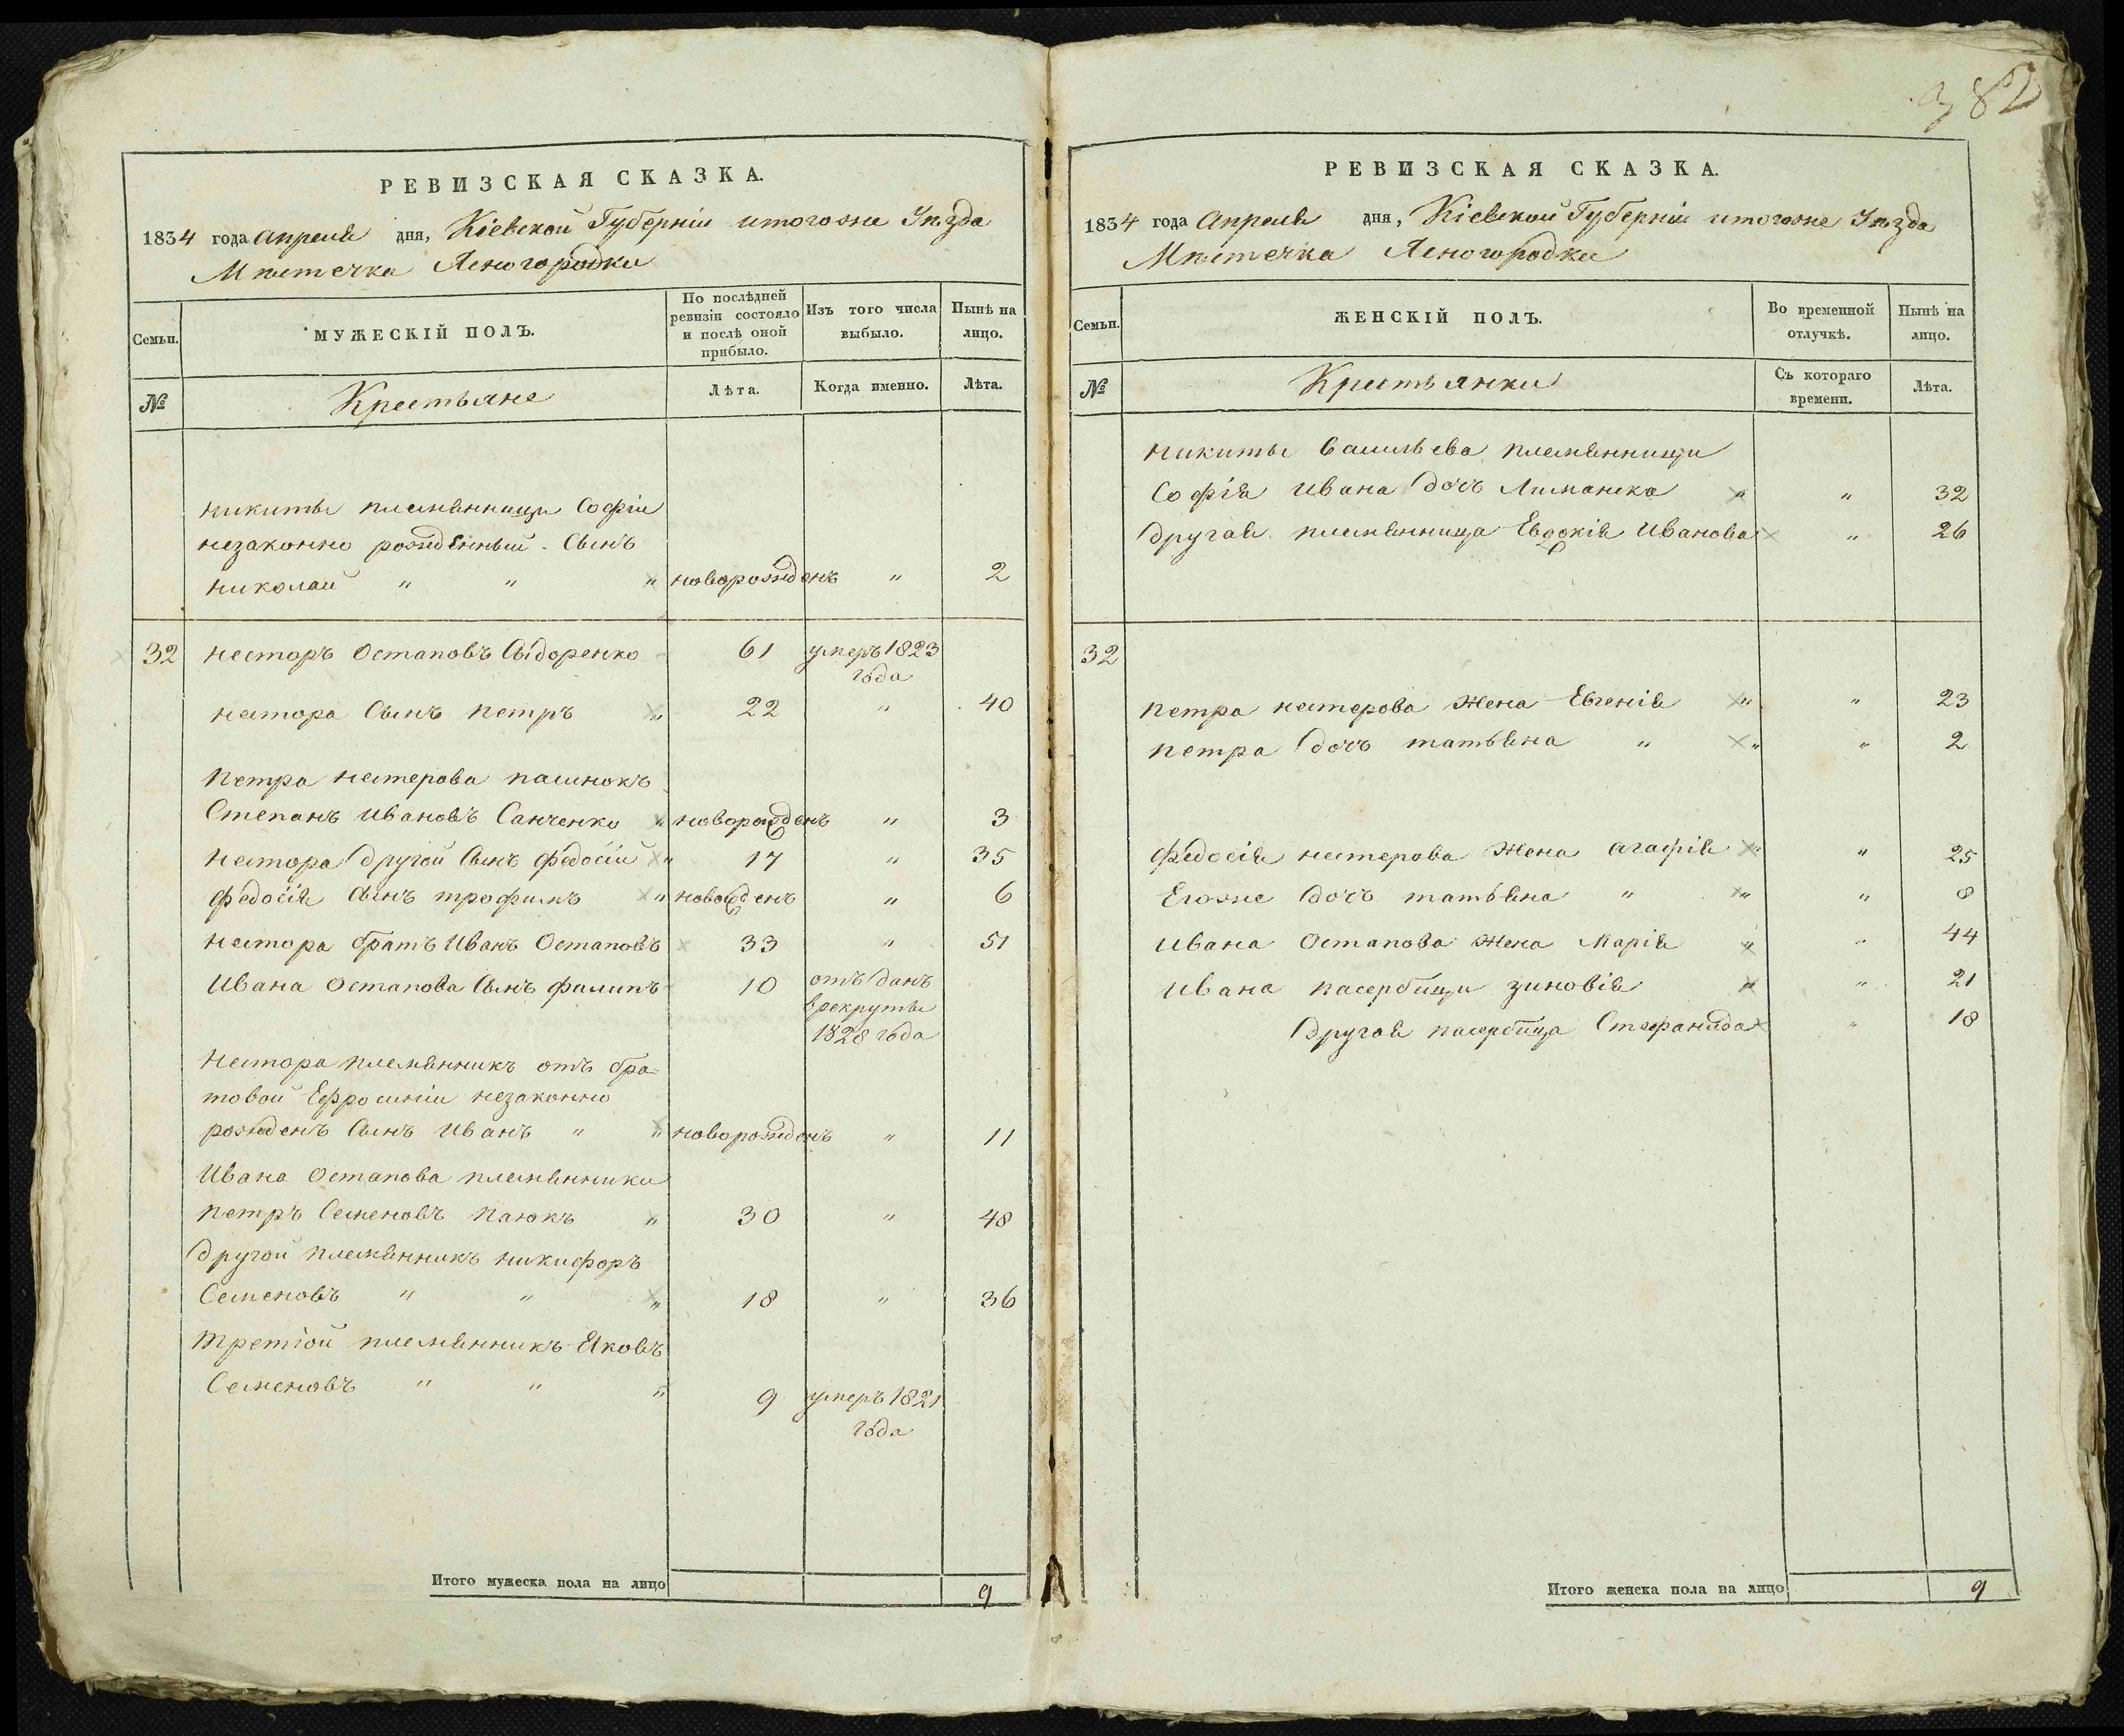 382
РЕВИЗСКАЯ СКАЗКА.
1834 года Апреля дня, Кіевской Губерніи итогоже Уѣзда
Мѣстечка Ясногородки
Семьи.
МУЖЕСКІЙ ПОЛЪ.
По послѣдней ревизіи состояло и послѣ оной прибыло.
Изъ того числа выбыло.
Нынѣ на лицо.
№
Крестьяне
Лѣта.
Когда именно.
Лѣта.
никиты племянницы Софіи
незаконно рожденный Сынъ
николай " " " новорожденъ " 2
32 несторъ Остаповъ Сыдоренко 61 умеръ 1823
года
нестора Сынъ петръ " 22 " 40
петра нестерова пасынокъ
Степанъ Ивановъ Санченко " новорожденъ " 3
нестора другой Сынъ федосій " 17 " 35
федосія Сынъ трофимъ " новорожденъ " 6
нестора братъ Иванъ Остаповъ 33 " 51
Ивана Остапова Сынъ филипъ 10 отъданъ
врекруты
1828 года
нестора племянникъ отъ бра=
товой Ефросиніи незаконно
рожденъ Сынъ Иванъ " " новорожденъ " 11
Ивана Остапова племянники
петръ Семеновъ " 30 " 48
другой племянникъ никифоръ
Семеновъ " " " 18 " 36
третіой племянникъ Яковъ
Семеновъ " " " 9 умеръ 1821
года
Итого мужеска пола на лицо 9
РЕВИЗСКАЯ СКАЗКА.
1834 года Апреля дня, Кіевской Губерніи итогоже Уѣзда
Мѣстечка Ясногородки
Семьи.
ЖЕНСКІЙ ПОЛЪ.
Во временной отлучкѣ.
Нынѣ на лицо.
№
Крестьянки
Съ котораго времени.
Лѣта.
никиты Васильева племянницы
Софія Ивана дочъ " " 32
другая племянница Евдокія Иванова " 26
32
петра нестерова жена Евгенія " " 23
петра дочъ татьяна " " " 2
федосія нестерова жена агафія " " 25
Егоже дочъ татьяна " " " 8
Ивана Остапова жена Марія " " 44
Ивана пасербицы зиновія " " 21
другая пасербица Стефанида " 18
Итого женска пола на лицо 9